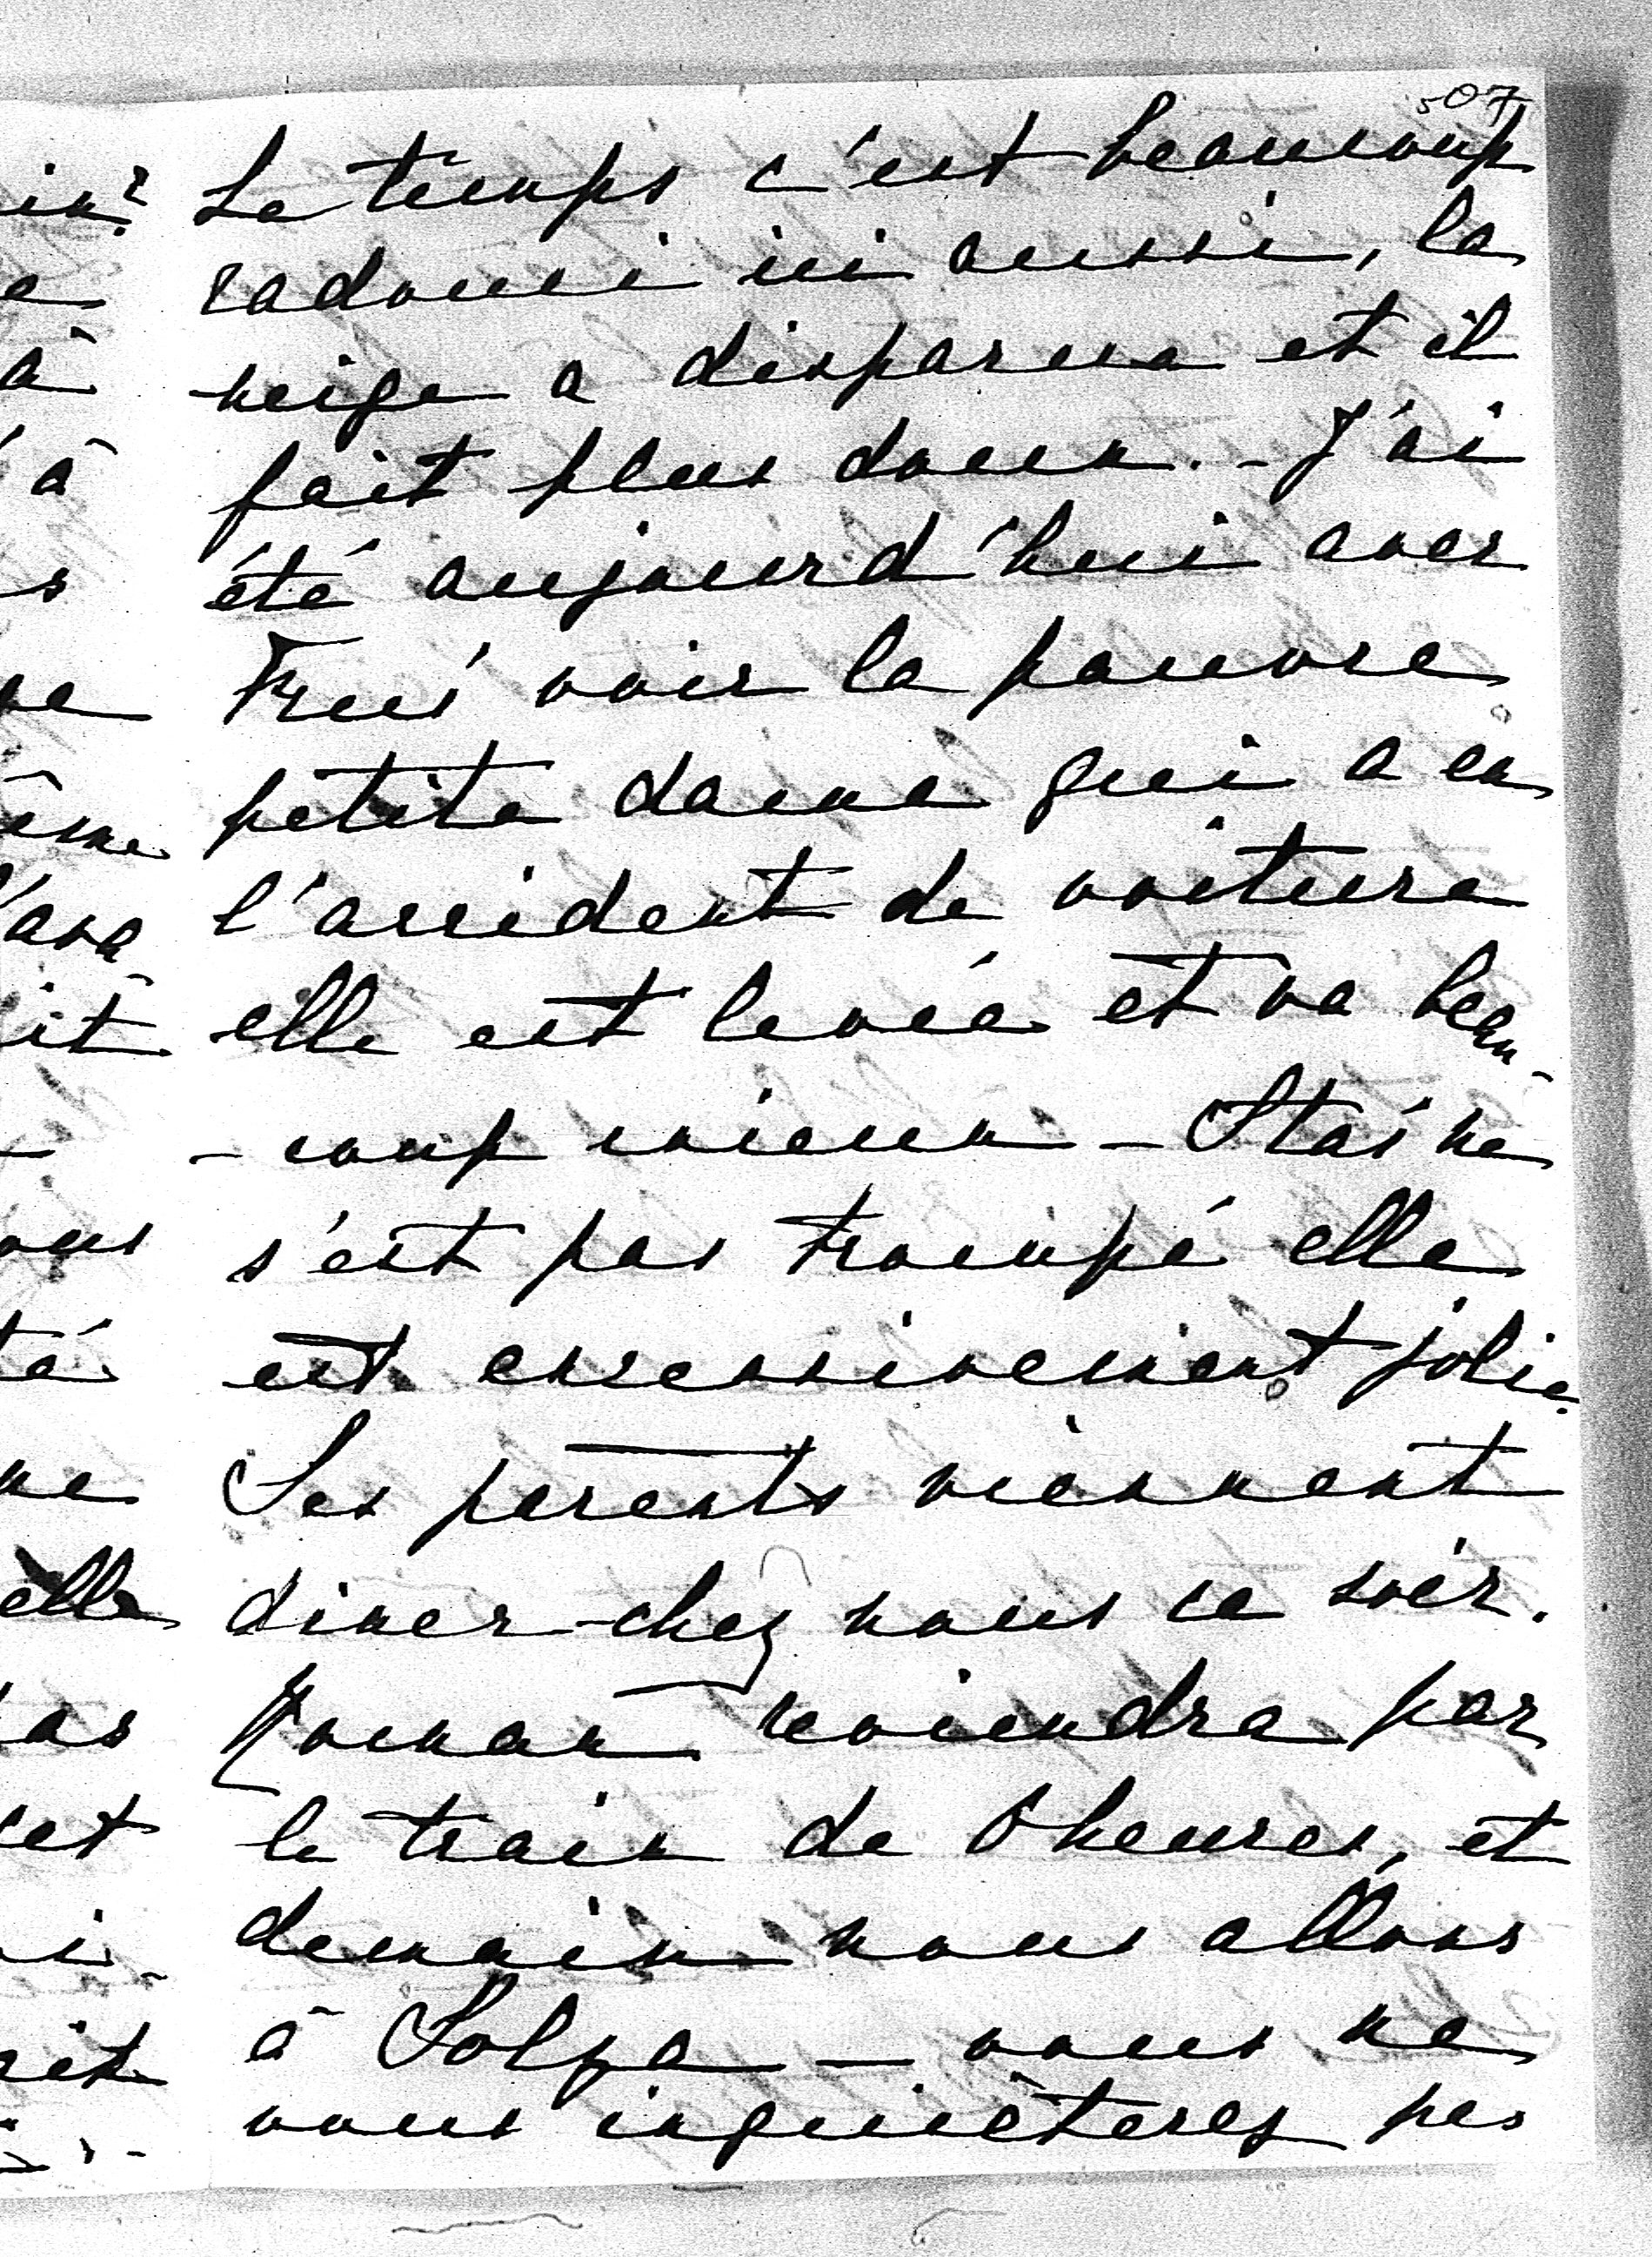 507
Le temps c'est beaucoup
radouci ici aussi, la
neige a disparue et il
fait plus doux. - J'ai
été aujourd'hui avec
voir la pauvre
petite dame qui a eu
l'accident de voiture
elle est levée et va beau-
- coup mieux - Staś ne
s'est pas trompé elle
est excessivement jolie.
Ses parents viennent
diner chez nous ce soir.
Roman reviendra par
le train de 6 heures, et
demain nous allons
à - vous ne
vous inquièterez pas